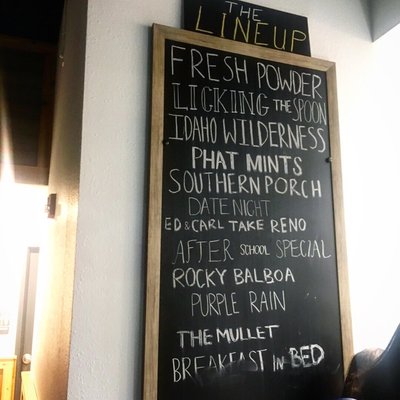 THE
LINEUP
FRESH POWDER
LICKING THE SPOON
IDAHO WILDERNESS
PHAT MINTS
SOUTHERN PORCH
DATE NIGHT
ED & CARL TAKE RENO
AFTER SCHOOL SPECIAL
ROCKY BALBOA
PURPLE RAIN
THE MULLET
BREAKFAST IN BED